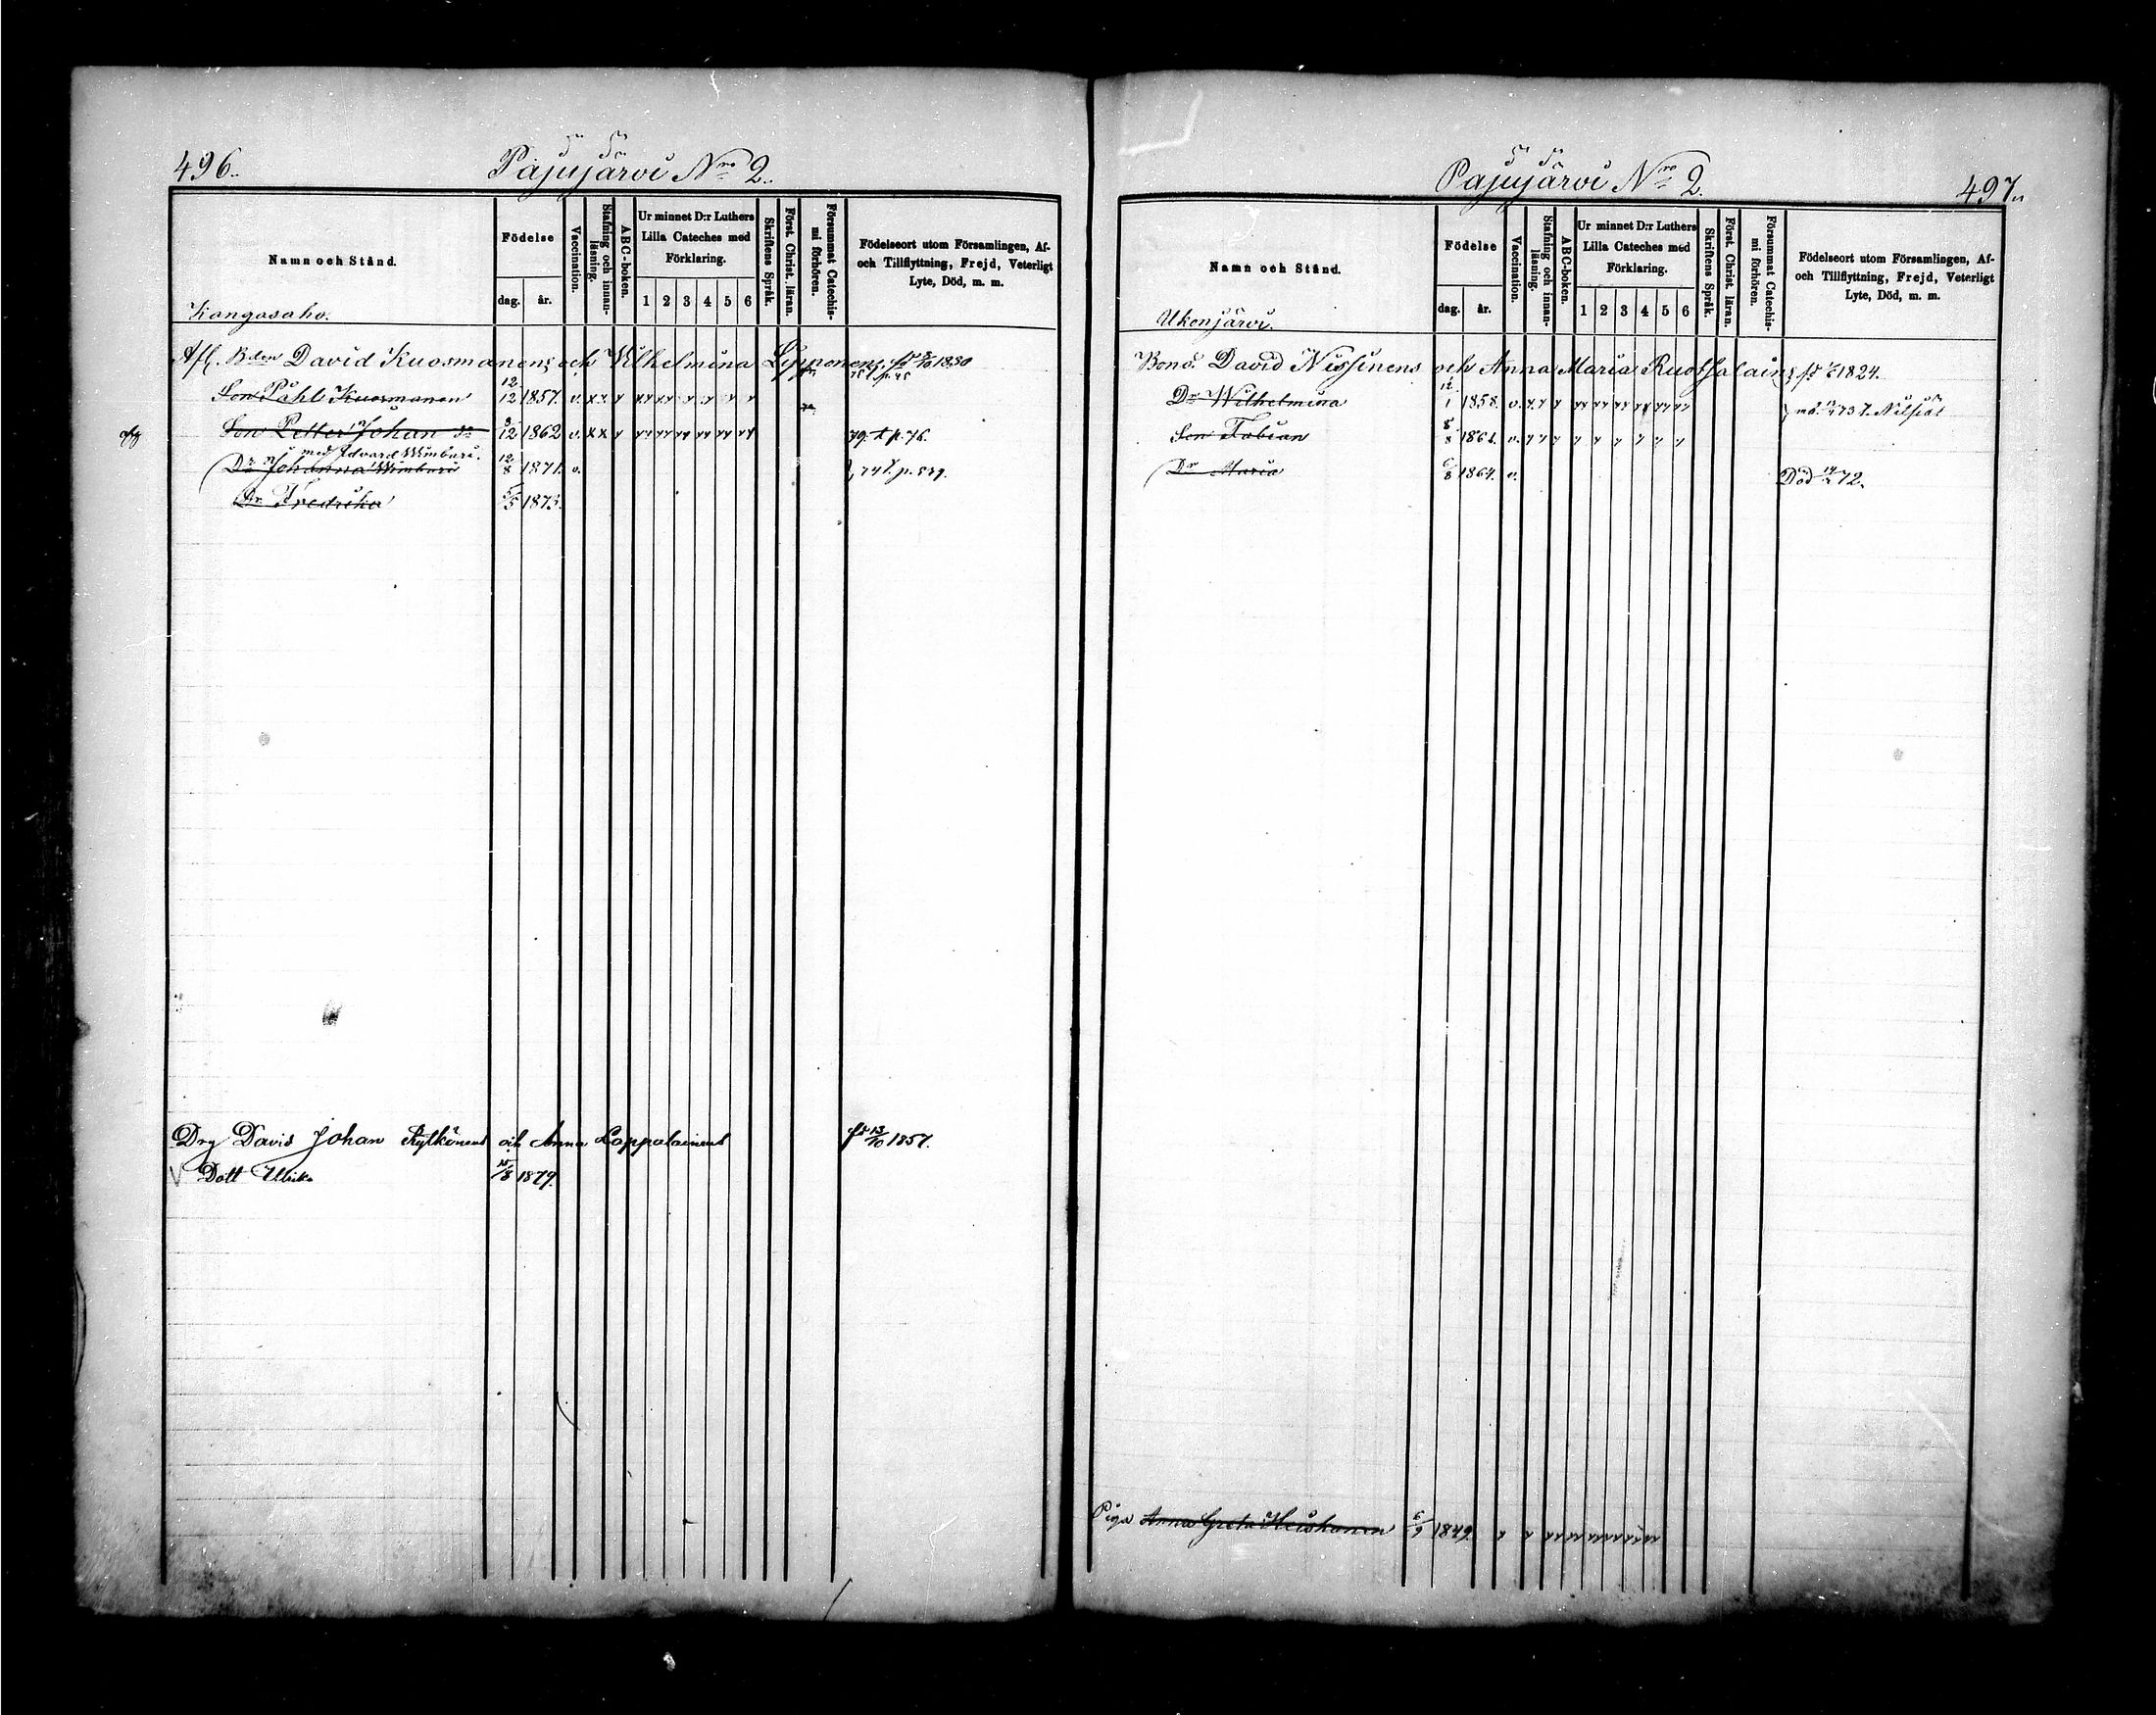 496.
Pajujärvi Nro 2.
Namn och Stånd.
Födelse
dag.
år.
Vaccination.
Stafning och innanläsning.
ABC-boken.
Ur minnet D:r Luthers
Lilla Cateches med
Förklaring.
1 2 3 4 5 6
Skriftens Språk.
Först. Christ. läran.
Försummat Catechismi förhören.
Födelseort utom Församlingen, Af-
och Tillflyttning, Frejd, Veterligt
Lyte, Död, m. m.
Kangasaho.
Afl. Bden David Kuosmanens och Wilhelmina Lipponens 1830
Son Påhl Kuosmanen 12/12 1857. v.
Son Petter Johan 3/12 1862 v. 79. p. 76.
med Edvard Wimbari.
Dr Johanna Wimbari 12/8 1871. v. 74 p. 529.
Dr Fredrika 5/5 1873.
Drg David Johan Rytkönens och Anna Lappalainens 13/10 1857.
V Dott Ulrika 15/8 1879.
Pajujärvi Nro 2.
497.
Namn och Stånd.
Födelse
dag.
år.
Vaccination.
Stafning och innanläsning.
ABC-boken.
Ur minnet D:r Luthers
Lilla Cateches med
Förklaring.
1 2 3 4 5 6
Skriftens Språk.
Först. Christ. läran.
Försummat Catechismi förhören.
Födelseort utom Församlingen, Af-
och Tillflyttning, Frejd, Veterligt
Lyte, Död, m. m.
Ukonjärvi.
Bond. David Nissinens och Anna Maria Ruotsalains 1824.
Dr Wilhelmina 12/1 1858. v. Nilsiä
Son Fabian 8/8 1861. v.
Dr Maria 6/8 1864. v. Död 72.
Piga Anna Greta Heiskanen 6/9 1849.